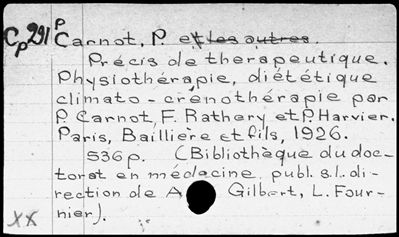 Cp291 P
Carnot, P. et les autres.
Précis de therapeutique.
Physiothérapie, diététique
climato-crénothérapie par
P. Carnot, F. Rathery et P. Harvier.
Paris, Baillière et fils, 1926.
536 p. (Bibliothèque du doc-
torat en médecine publ. s.l. di-
rection de A Gilbert, L. Four-
nier).
XX